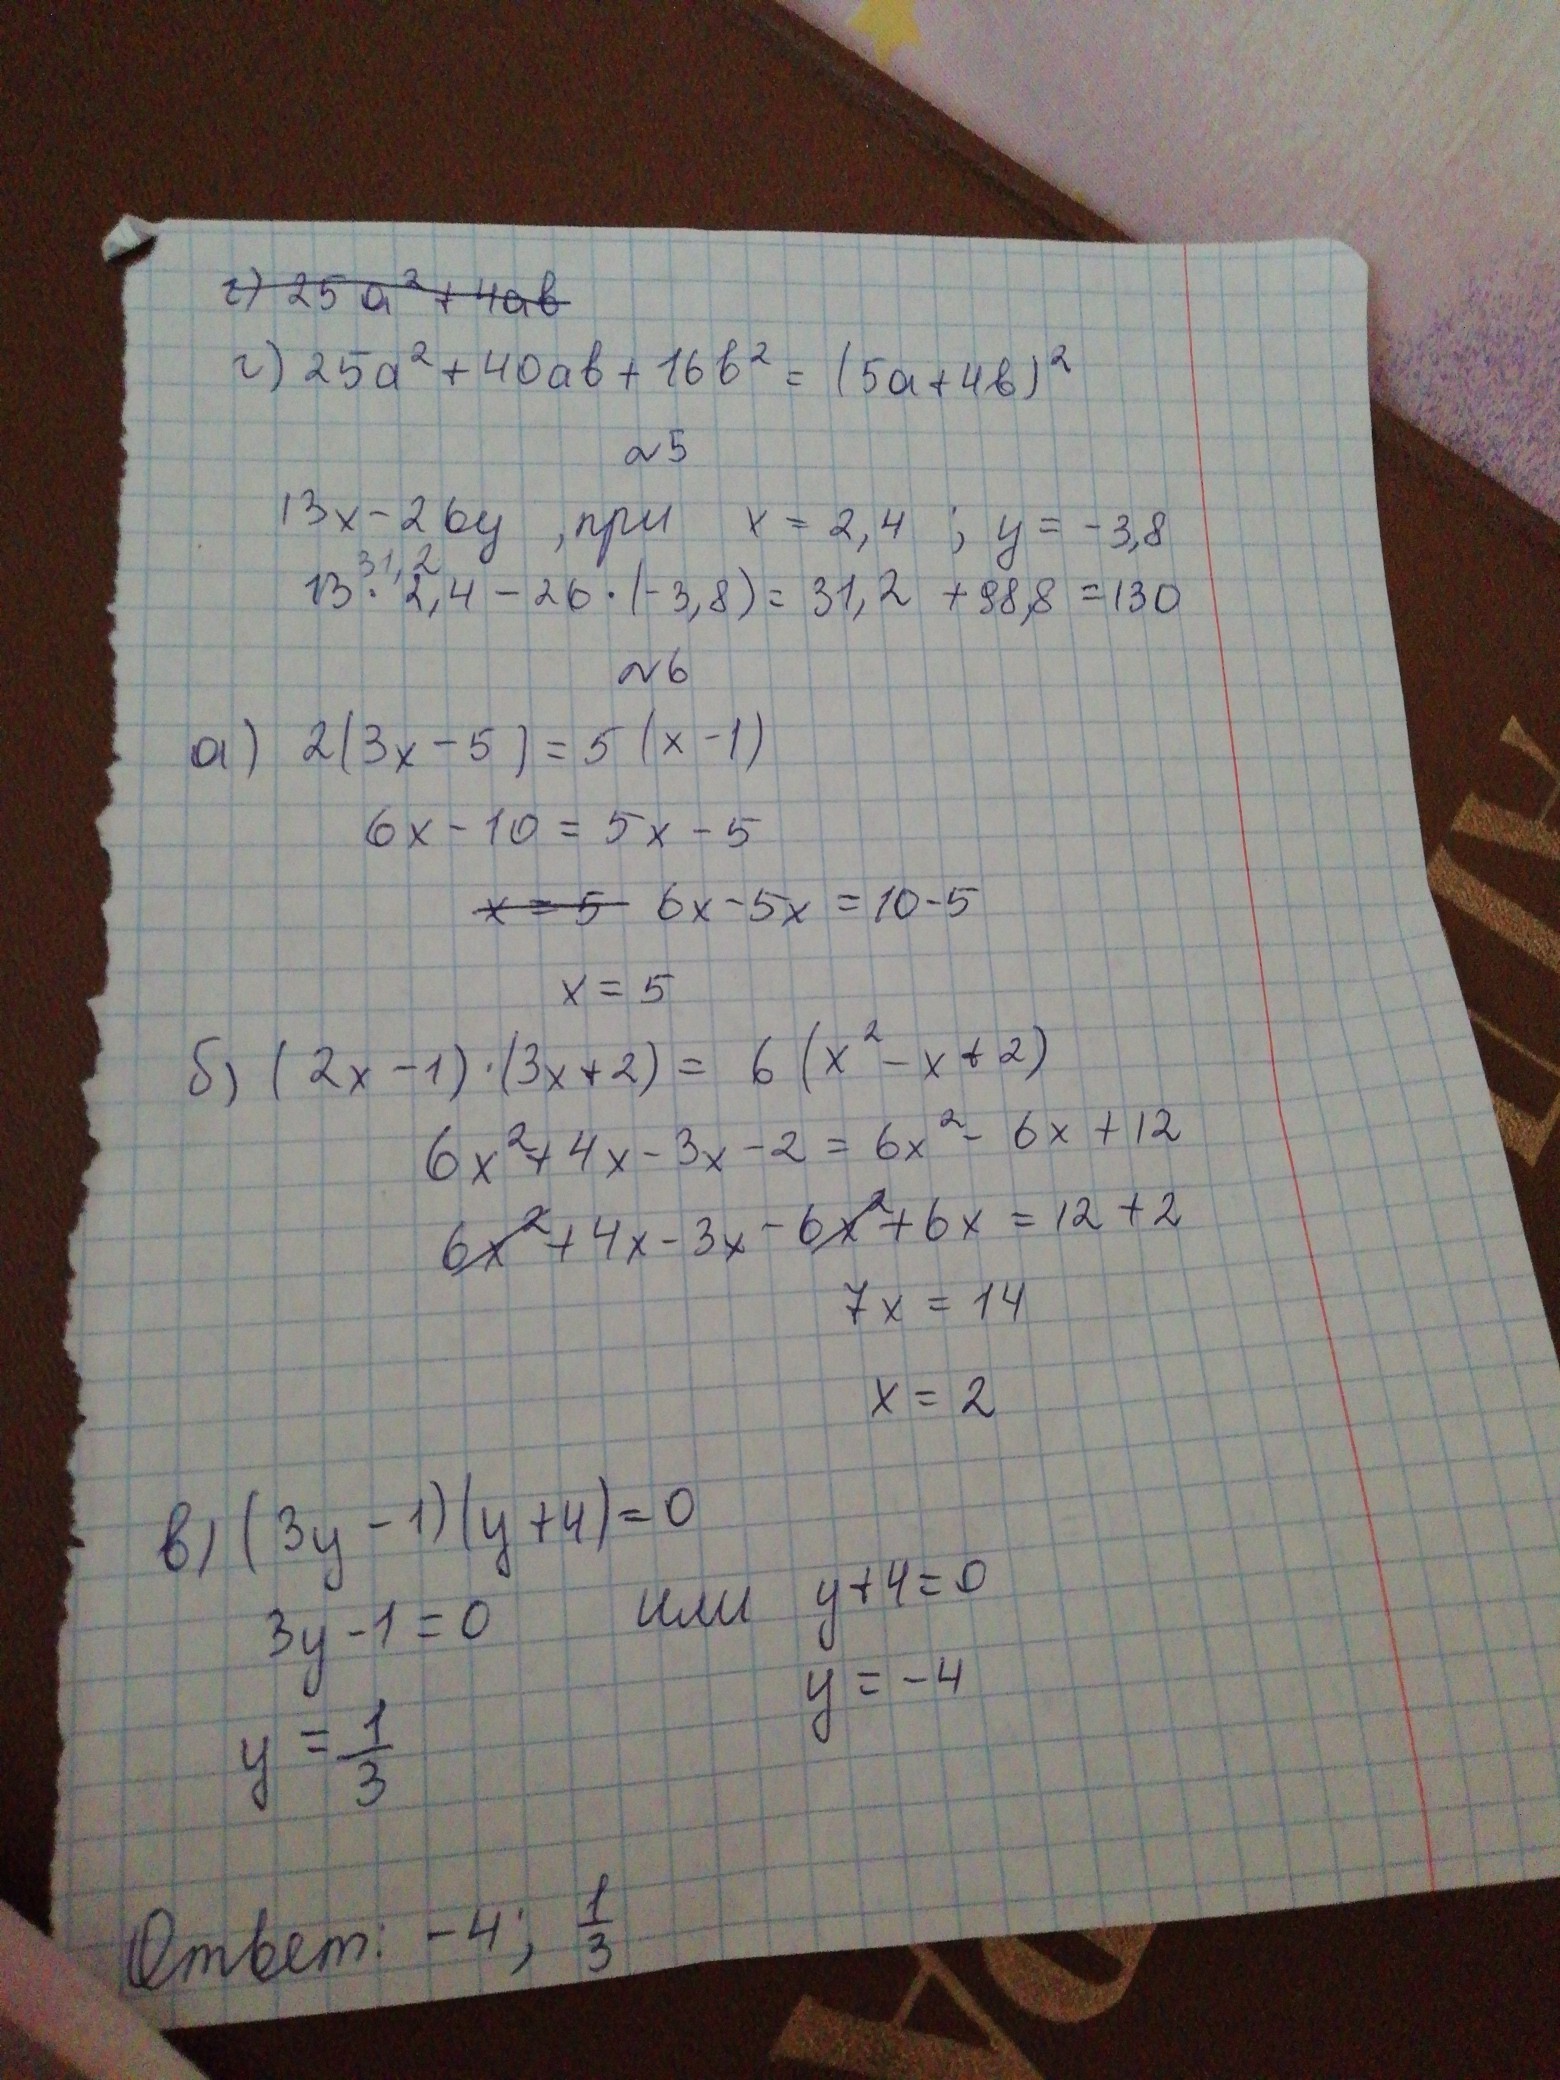 г) 25a² + 4ab
г) 25a² + 40ab + 16b² = (5a + 4b)²
№5
13x - 26y , при x = 2,4 ; y = -3,8
31,2
13 · 2,4 - 26 · (-3,8) = 31,2 + 98,8 = 130
№6
а) 2(3x - 5) = 5(x - 1)
6x - 10 = 5x - 5
x = 5 6x - 5x = 10 - 5
x = 5
б) (2x - 1) · (3x + 2) = 6(x² - x + 2)
6x² + 4x - 3x - 2 = 6x² - 6x + 12
6x² + 4x - 3x - 6x² + 6x = 12 + 2
7x = 14
x = 2
в) (3y - 1)(y + 4) = 0
3y - 1 = 0 или y + 4 = 0
y = 1/3 y = -4
Ответ: -4; 1/3